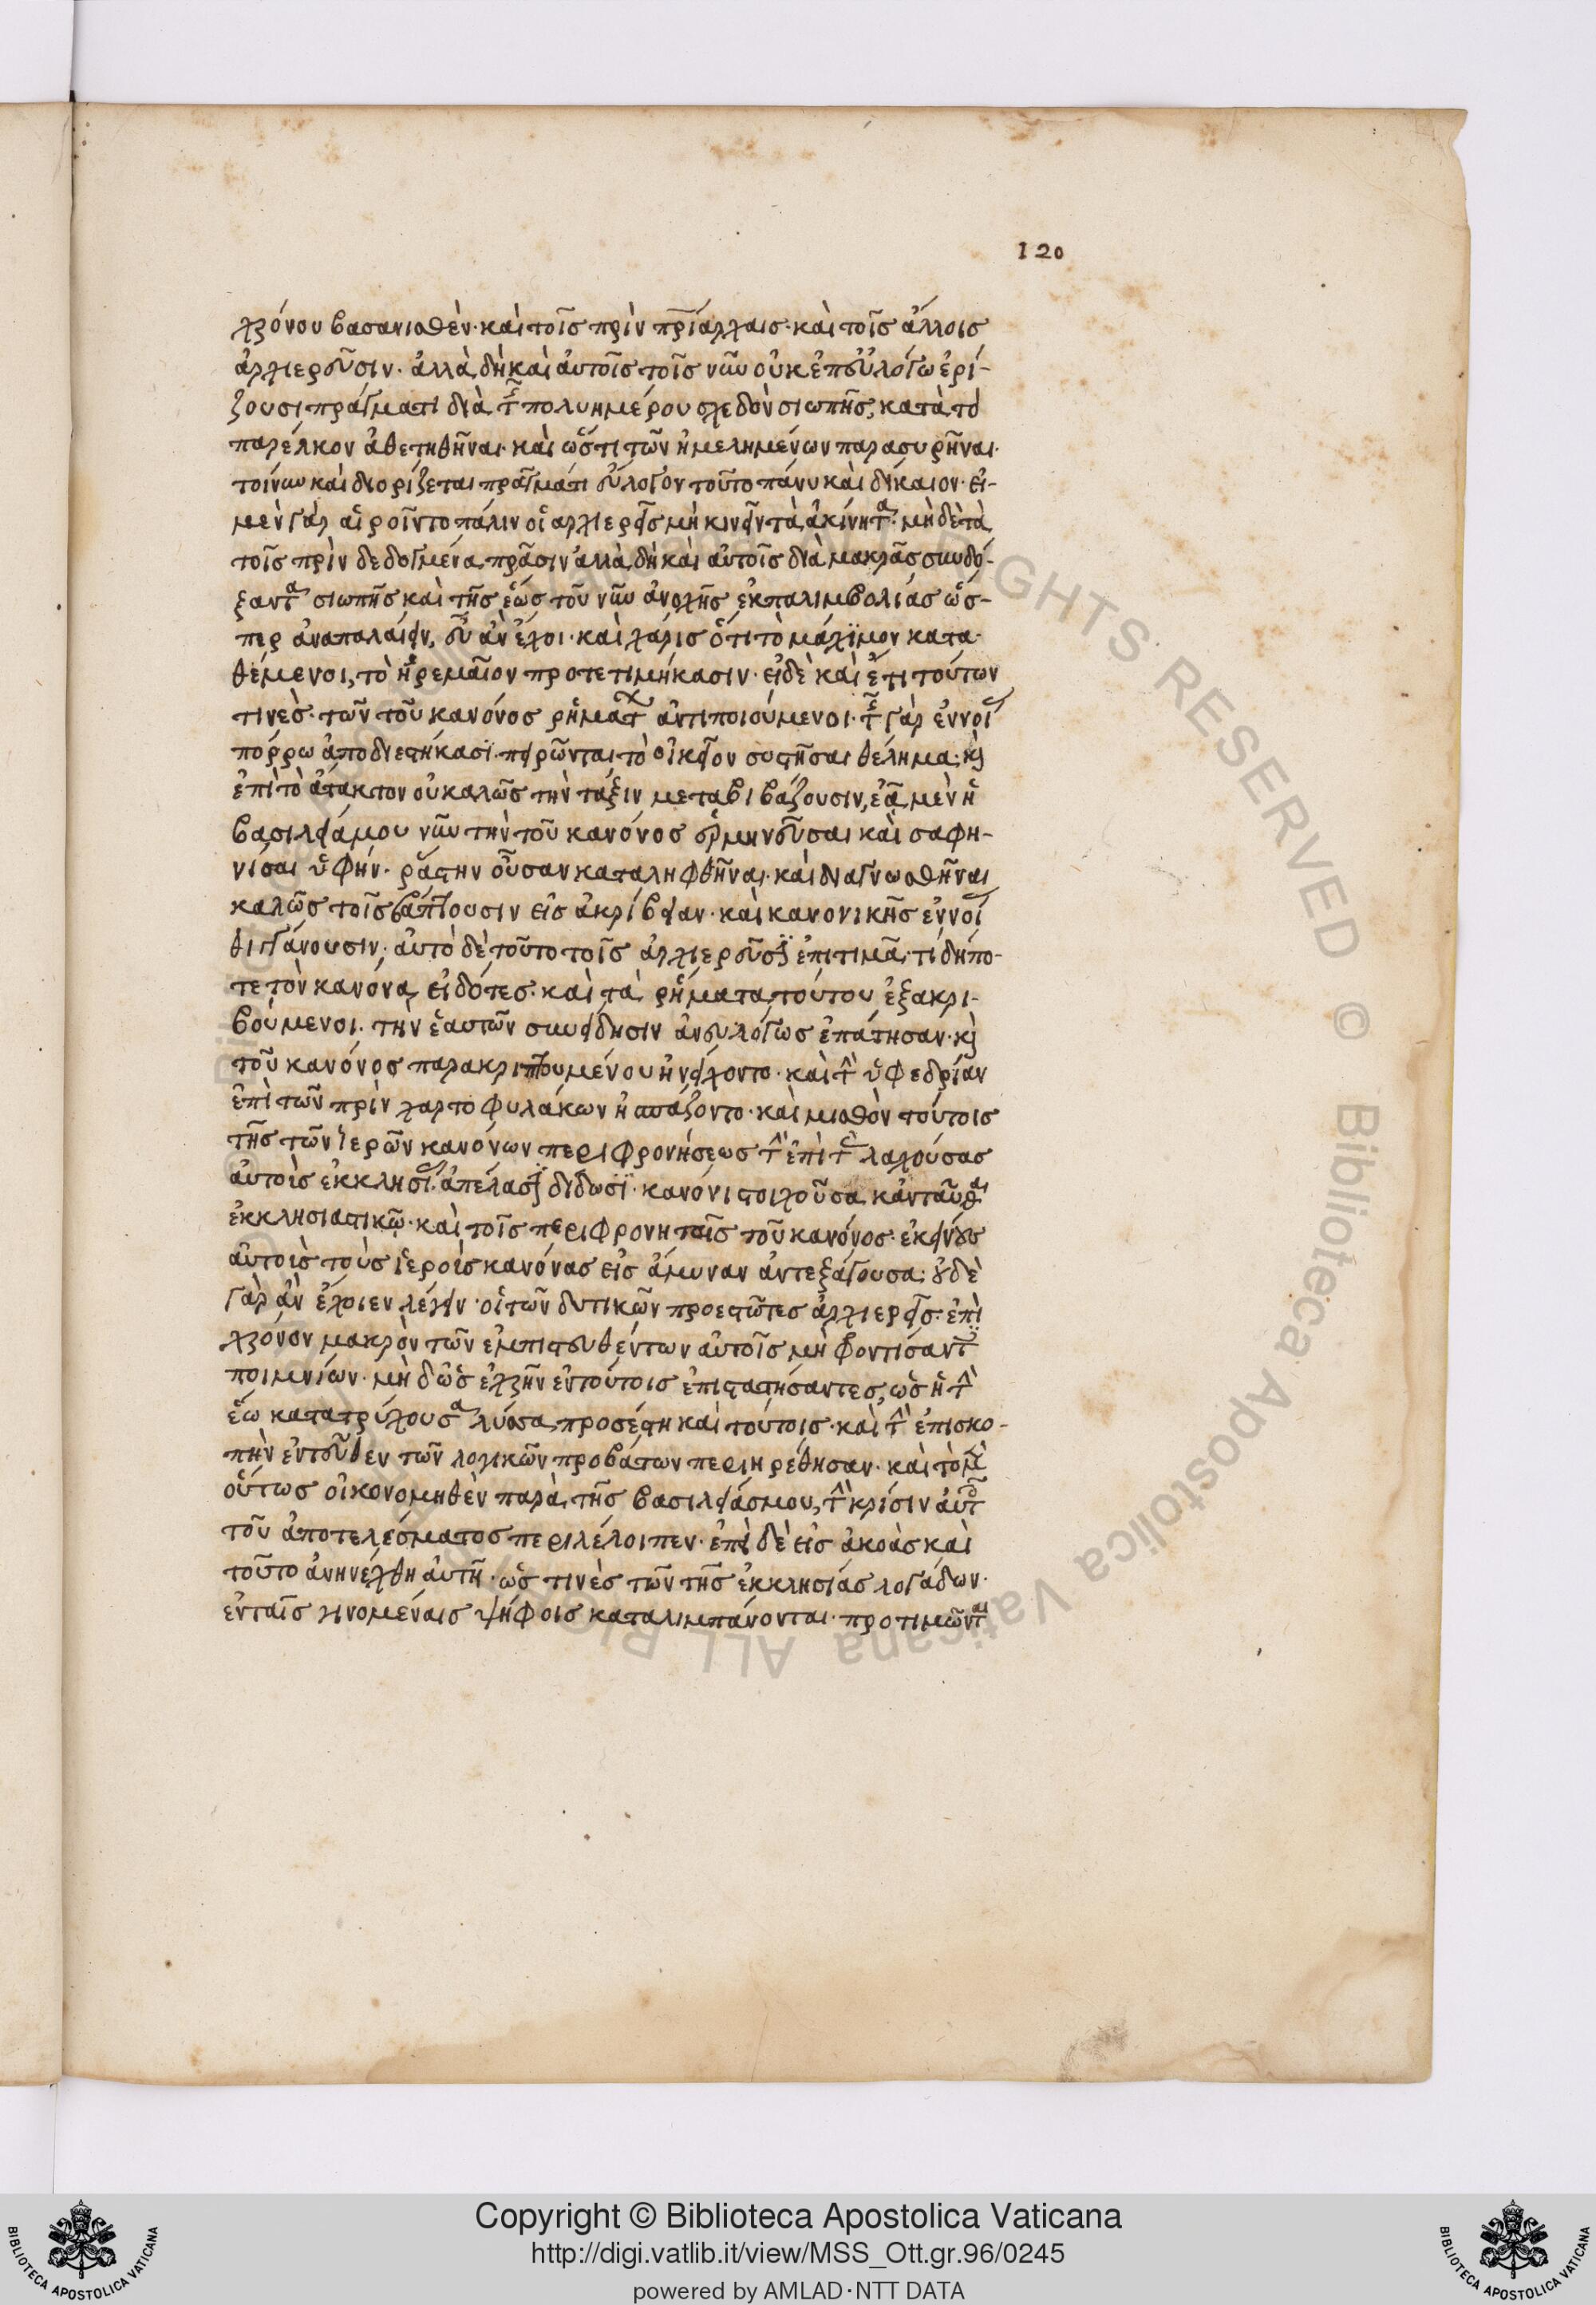 120
χρόνου βασανισθὲν· καὶ τοῖς πρὶν πριάρχαις· καὶ τοῖς ἄλλοις
ἀρχιερεῦσιν· ἀλλὰ δὴ καὶ αὐτοῖς τοῖς νῦν οὐκ ἐπευλόγω ἐρί-
ζουσι πράγματι διὰ τῆς πολυημέρου σχεδὸν σιωπῆς, κατὰ τὸ
παρέλκον ἀθετηθῆναι· καὶ ὥς τι τῶν ἠμελημένων παρασυρῆναι·
τοίνυν καὶ διορίζεται πράγματι εὔλογον τοῦτο πάνυ καὶ δίκαιον· εἰ-
μὲν γὰρ αἱροῖντο πάλιν οἱ ἀρχιερεῖς μὴ κινεῖν τὰ ἀκίνητα· μὴ δὲ τὰ
τοῖς πρὶν δεδογμένα πρᾶσιν ἀλλὰ δὴ καὶ αὐτοῖς διὰ μακρᾶς συνδό-
ξαντα σιωπῆς καὶ τῆς ἕως τοῦ νῦν ἀνοχῆς ἐκπαλιμβολίας ὥσ-
περ ἀναπαλαίειν, εὖ ἂν ἔχοι· καὶ χάρις ὅτι τὸ μάχιμον κατα-
θέμενοι, τὸ ἠρεμαῖον προτετιμήκασιν· εἰ δὲ καὶ ἔτι τούτων
τινὲς· τῶν τοῦ κανόνος ῥημάτων ἀντιποιούμενοι· τῆς γὰρ ἐννοίας
πόρρω ἀποδιεστήκασι· πειρῶνται τὸ οἰκεῖον συστῆσαι θέλημα· καὶ
ἐπὶ τὸ ἄτακτον οὐ καλῶς τὴν τάξιν μεταβιβάζουσιν, ἐᾶ μὲν ἡ
βασιλεία μου νῦν τὴν τοῦ κανόνος ἑρμηνεῦσαι καὶ σαφη-
νίσαι ὑφήν· ῥᾴστην οὖσαν καταληφθῆναι· καὶ διαγνωσθῆναι
καλῶς τοῖς βάπτουσιν εἰς ἀκρίβειαν· καὶ κανονικῆς ἐννοίας
θιγγάνουσιν· αὐτὸ δὲ τοῦτο τοῖς ἀρχιερεῦσι ἐπιτιμᾶ· τί δήπο-
τε τὸν κανόνα εἰδότες· καὶ τὰ ῥήματα τούτου ἐξακρι-
βούμενοι· τὴν ἑαυτῶν συνείδησιν ἀνευλόγως ἐπάτησαν· καὶ
τοῦ κανόνος παρακριπτουμένου ἠνείχοντο· καὶ τὴν ὑφεδρίαν
ἐπὶ τῶν πρὶν χαρτοφυλάκων ἠσπάζοντο· καὶ μισθὸν τούτοις
τῆς τῶν ἱερῶν κανόνων περιφρονήσεως τὴν ἐπὶ τὰς λαχούσας
αὐτοὶς ἐκκλησίας ἀπέλασι δίδωσι· κανόνι στοιχοῦσα κἀνταῦθα
ἐκκλησιαστικῷ· καὶ τοῖς περιφρονηταῖς τοῦ κανόνος· ἐκείνους
αὐτοὶς τοὺς ἱεροὶς κανόνας εἰς ἄμυναν ἀντεξάγουσα· οὐδὲ
γὰρ ἂν ἔχοιεν λέγειν· οἱ τῶν δυτικῶν προεστῶτες ἀρχιερεῖς· ἐπὶ
χρόνον μακρὸν τῶν ἐμπιστευθέντων αὐτοῖς μὴ φροντίσαντες
ποιμνίων· μὴ δ' ὡς ἐχρῆν ἐν τούτοις ἐπιστατήσαντες, ὡς ἡ τὴν
ἕω κατατρύχουσα λύσσα, προσέστη καὶ τούτοις· καὶ τὴν ἐπισκο-
πὴν ἐντεῦθεν τῶν λογικῶν προβάτων περιῃρέθησαν· καὶ τὸ μὲν
οὕτως οἰκονομηθὲν παρὰ τῆς βασιλείας μου, τὴν κρίσιν αὐτοῦ
τοῦ ἀποτελέσματος περιλέλοιπεν· ἐπεὶ δὲ εἰς ἀκοὰς καὶ
τοῦτο ἀνηνέχθη αὐτῆ· ὥς τινὲς τῶν τῆς ἐκκλησίας λογάδων·
ἐν ταῖς γινομέναις ψήφοις καταλιμπάνονται· προτιμῶνται
© Biblioteca Apostolica Vaticana ALL RIGHTS RESERVED
Copyright © Biblioteca Apostolica Vaticana
http://digi.vatlib.it/view/MSS_Ott.gr.96/0245
powered by AMLAD·NTT DATA
BIBLIOTECA APOSTOLICA VATICANA
BIBLIOTECA APOSTOLICA VATICANA